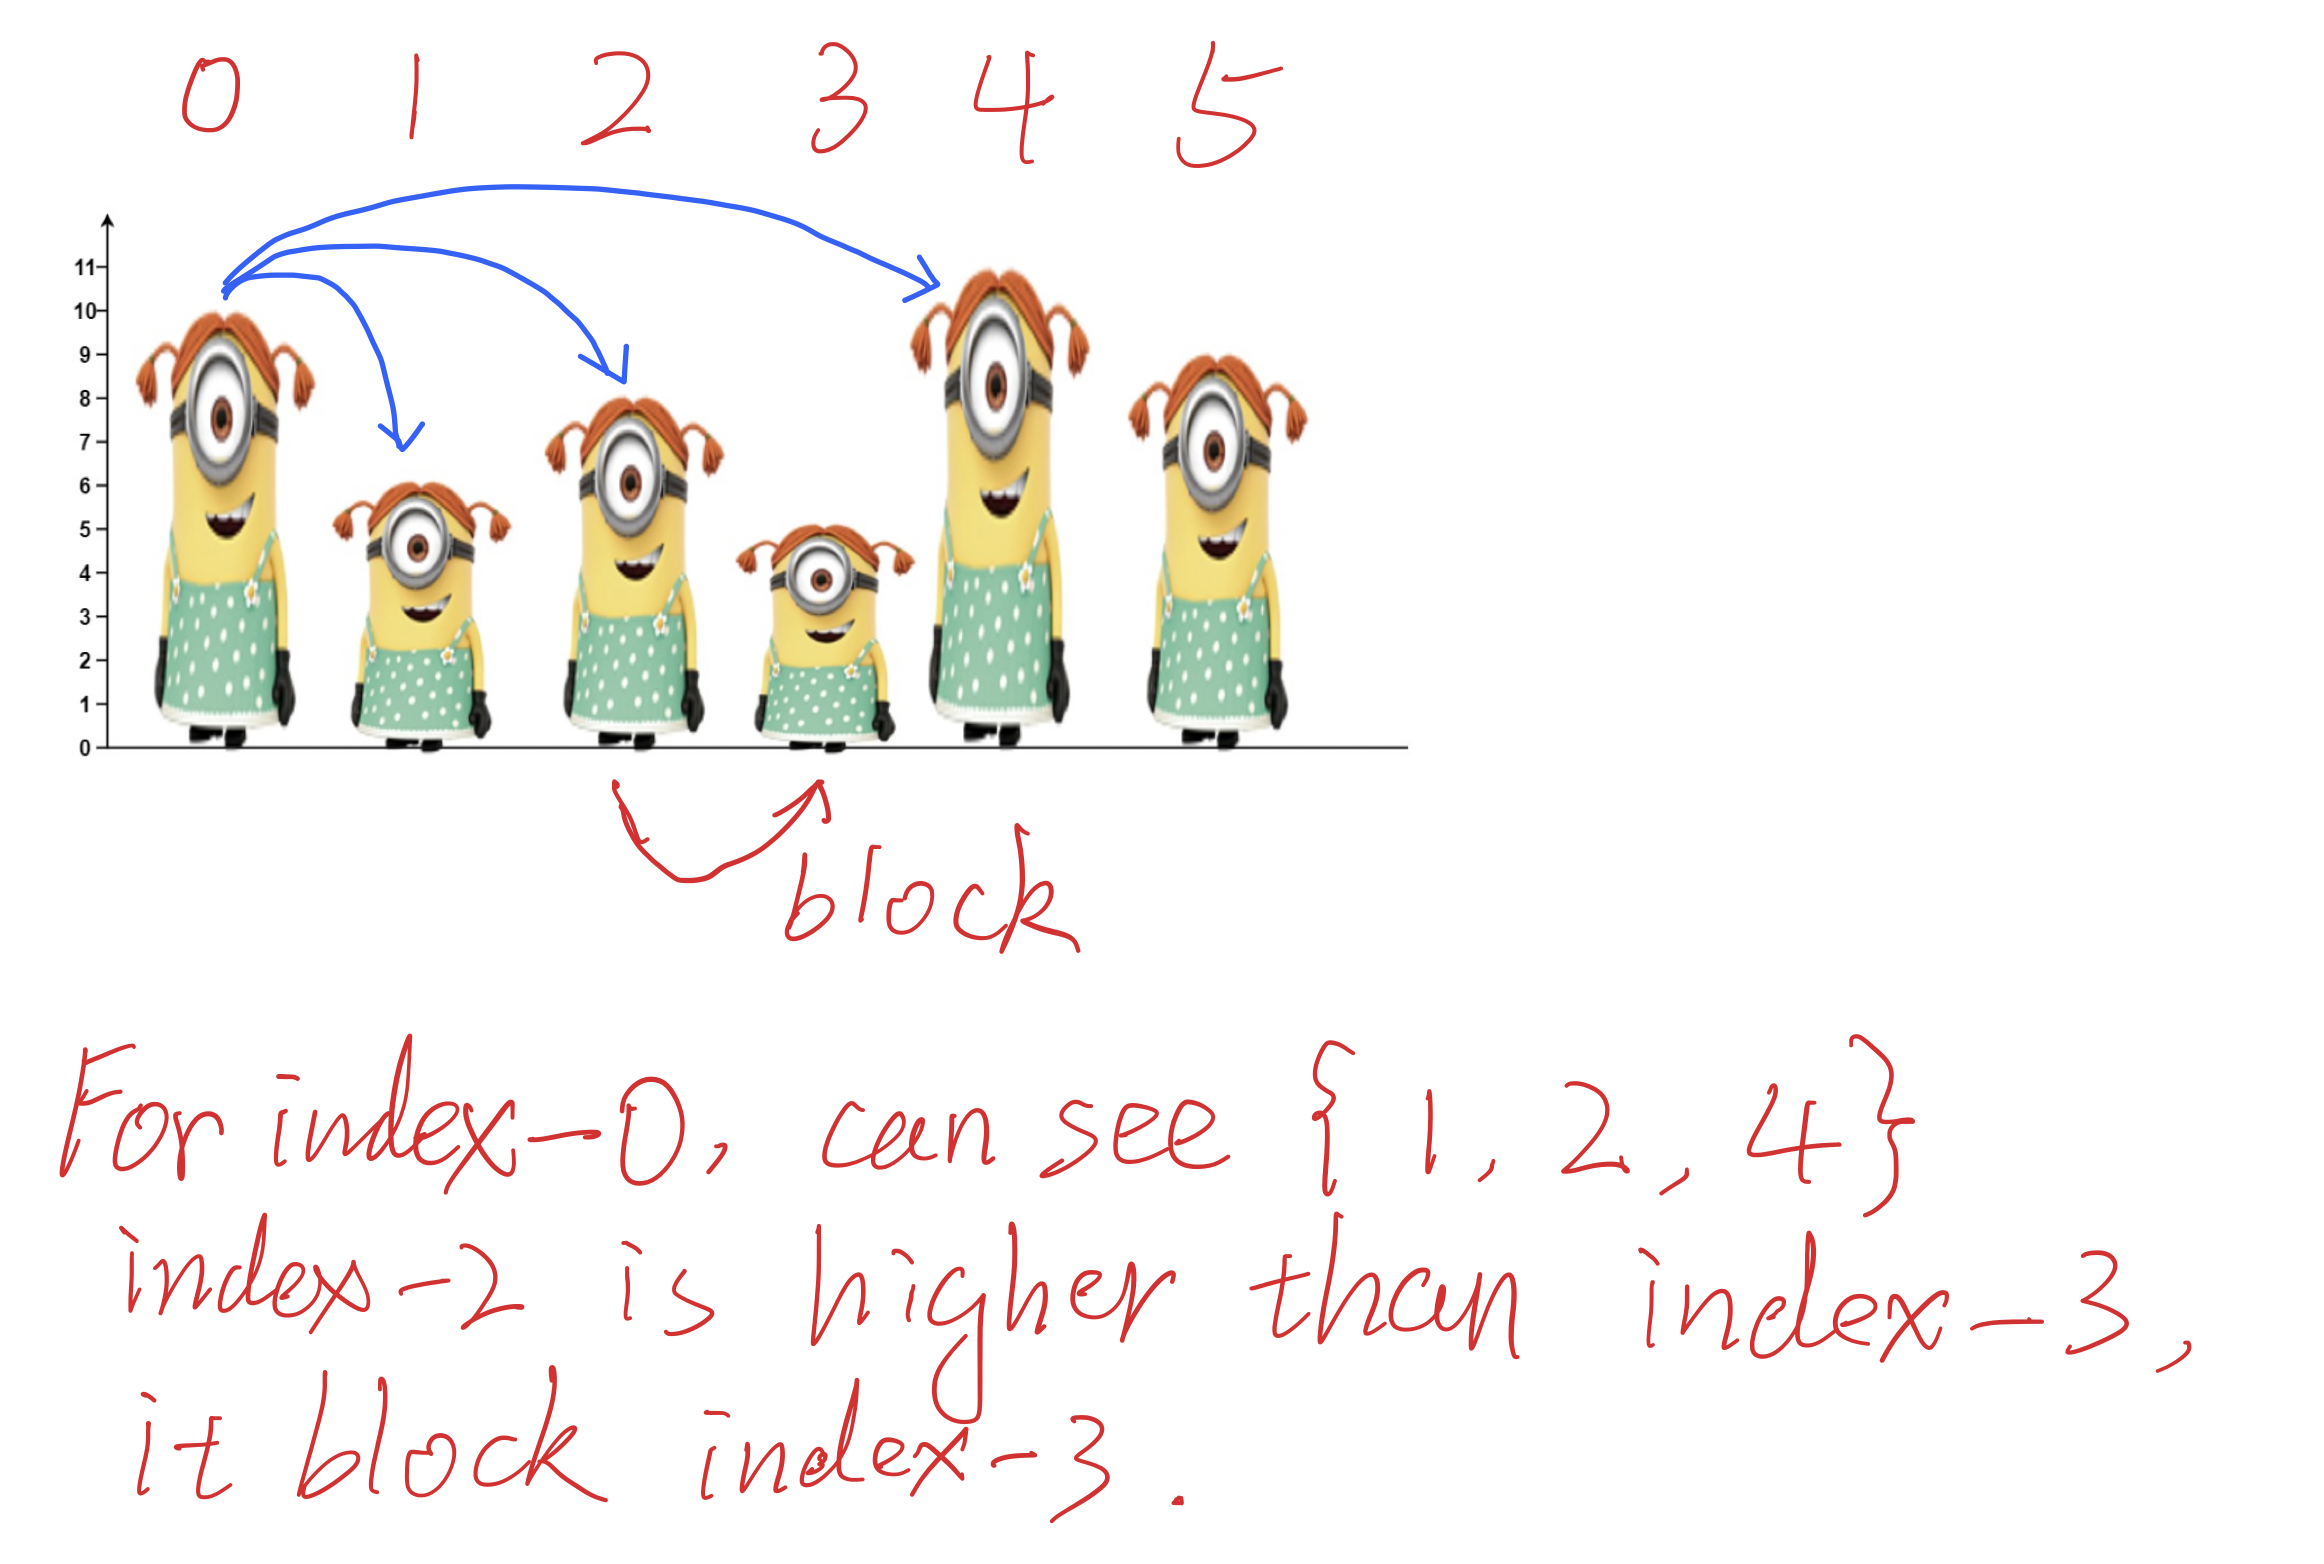 0 1 2 3 4 5
11
10
9
8
7
6
5
4
3
2
1
0
block
For index-0, can see { 1, 2, 4}
index-2 is higher than index-3,
it block index-3.